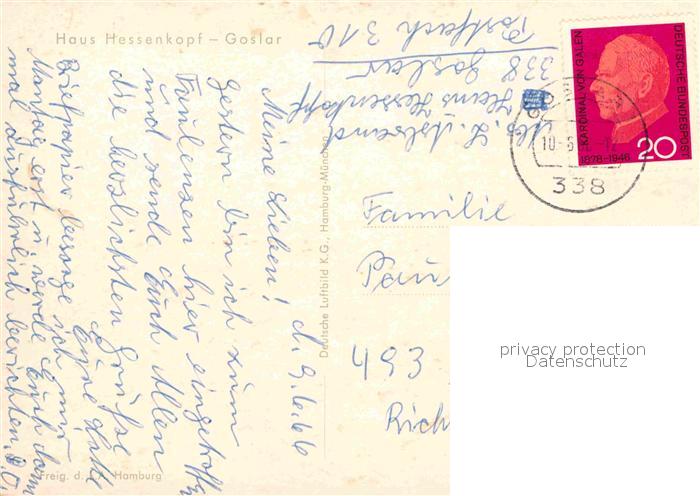 Haus Hessenkopf – Goslar
Meine Lieben! d. 9.6.66
Gestern bin ich zum
Faulenzen hier eingetroffen
und sende Euch Allen
die herzlichsten Grüße
Eure
Briefpapier besorge ich mir
Montag erst u. werde Euch dann
mal ausführlich berichten. D.O.
Freig. d. Hamburg
Deutsche Luftbild K.G., Hamburg-München
Abs.
Haus Hessenkopf
338 Goslar
Postfach 310
KARDINAL VON GALEN
1878-1946
DEUTSCHE BUNDESPOST
20
338
Familie
Pau
493
Rich
privacy protection
Datenschutz